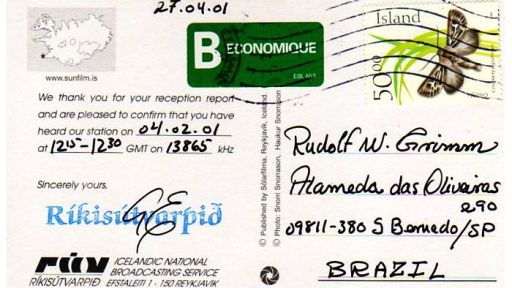 27.04.01
B ECONOMIQUE
Island
50.00
www.sunfilm.is
We thank you for your reception report
and are pleased to confirm that you have
heard our station on 04.02.01
at 1215-1230 GMT on 13865 kHz
Sincerely yours,
Ríkisútvarpið
RÚV ICELANDIC NATIONAL
BROADCASTING SERVICE
RÍKISÚTVARPIÐ EFSTALEITI 1 · 150 REYKJAVIK
© Published by Sólarfilma, Reykjavik, Iceland.
© Photo: Snorri Snorrason, Haukur Snorrason
Rudolf W. Grimm
Alameda das Oliveiras
290
09811-380 S Bernedo/SP
BRAZIL